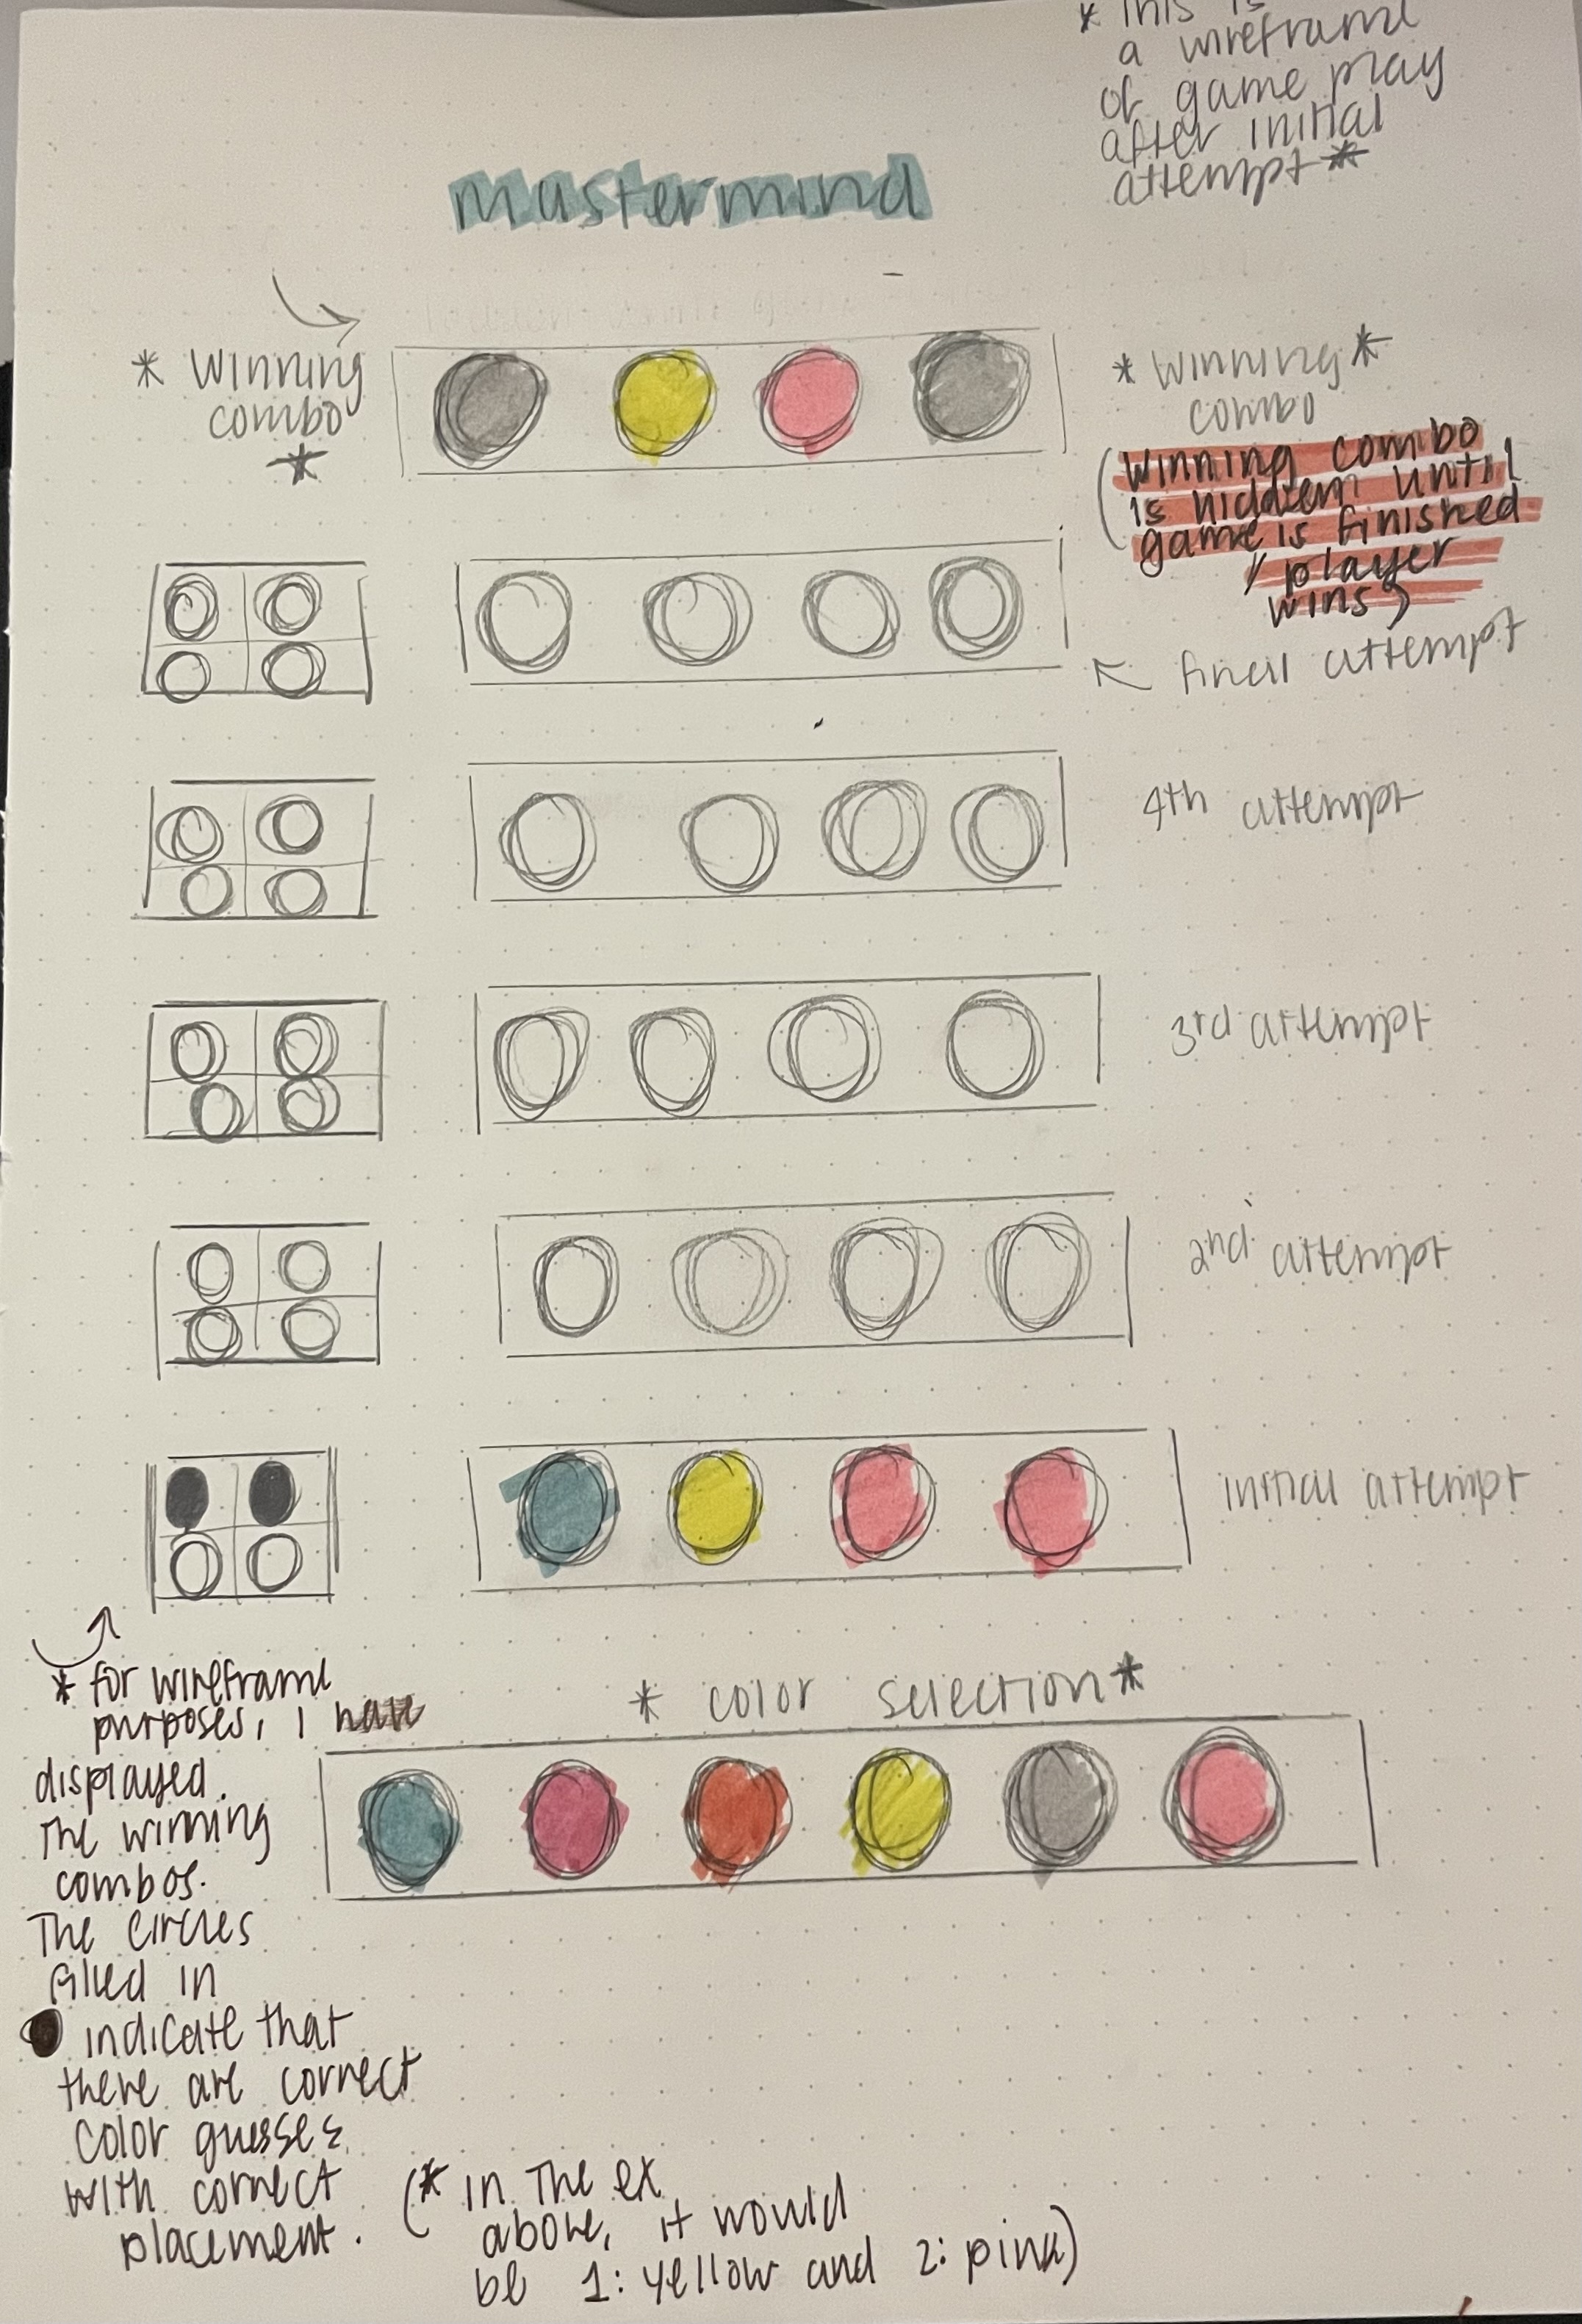 * This is
a wireframe
of game play
after initial
attempt *
mastermind
* winning
combo
*
* winning *
combo
(winning combo
is hidden until
game is finished
/ player
wins)
final attempt
4th attempt
3rd attempt
2nd attempt
initial attempt
* color selection *
* for wireframe
purposes, I have
displayed
The winning
combos.
The circles
filled in
indicate that
there are correct
color guesses
with correct
placement.
(* in The ex
above, it would
be 1: yellow and 2: pink)